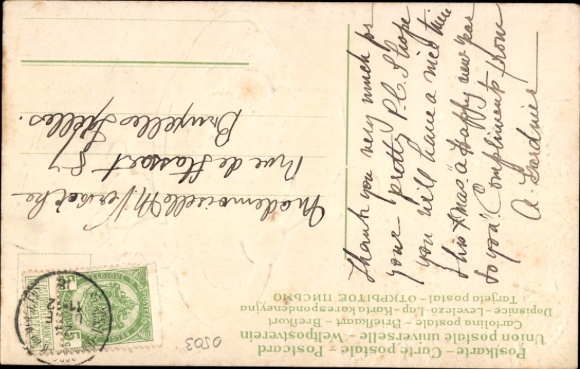 Postkarte - Carte postale - Postcard
Union postale universelle - Weltpostverein
Cartolina postale - Briefkaart - Brefkort
Dopisnice - Levelező-Lap - Karta korespondencyjna
Tarjeta postal - ОТКРЫТОЕ ПИСЬМО
Thank you very much for
your pretty P.C. I hope
you will have a nice time
this Xmas a Happy new year
to you Compliments from
A. Gardner
Mademoiselle M
rue de Stassart 87
Bruxelles Ixelles.
BELGIQUE
5
0503